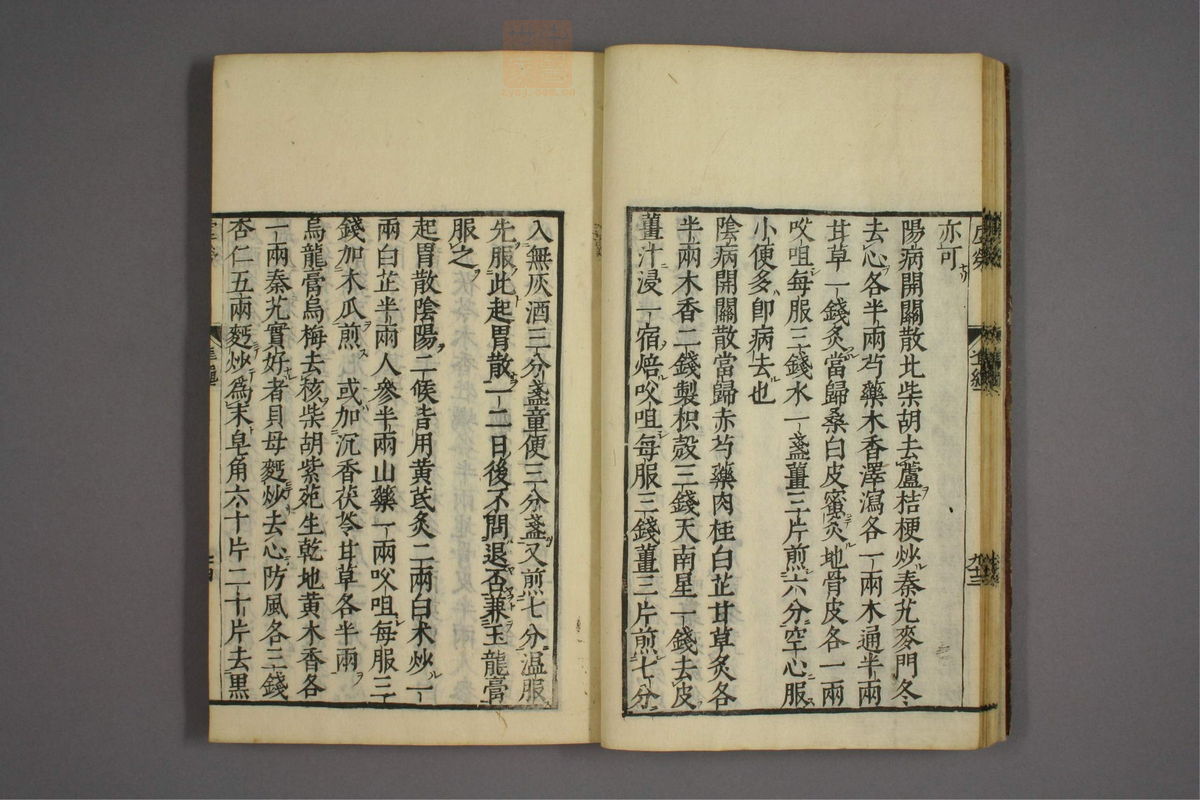 亦可
陽病開關散北柴胡去蘆桔梗炒秦艽麥門冬
去心各半兩芍藥木香澤瀉各一兩木通半兩
甘草一錢炙當歸桑白皮蜜炙地骨皮各一兩
㕮咀每服三錢水一盞薑三片煎六分空心服
小便多卽病去也
陰病開關散當歸赤芍藥肉桂白芷甘草炙各
半兩木香二錢製枳殼三錢天南星一錢去皮
薑汁浸一宿焙㕮咀每服三錢薑三片煎七分
入無灰酒三分盞童便三分盞又煎七分温服
先服此起胃散一二日後不問退否兼玉龍膏
服之
起胃散陰陽二候皆用黄芪炙二兩白术炒一
兩白芷半兩人參半兩山藥一兩㕮咀每服三
錢加木瓜煎或加沉香茯苓甘草各半兩
烏龍膏烏梅去核柴胡紫菀生乾地黄木香各
一兩秦艽實好者貝母麪炒去心防風各三錢
杏仁五兩麪炒爲末皂角六十片二十片去黒